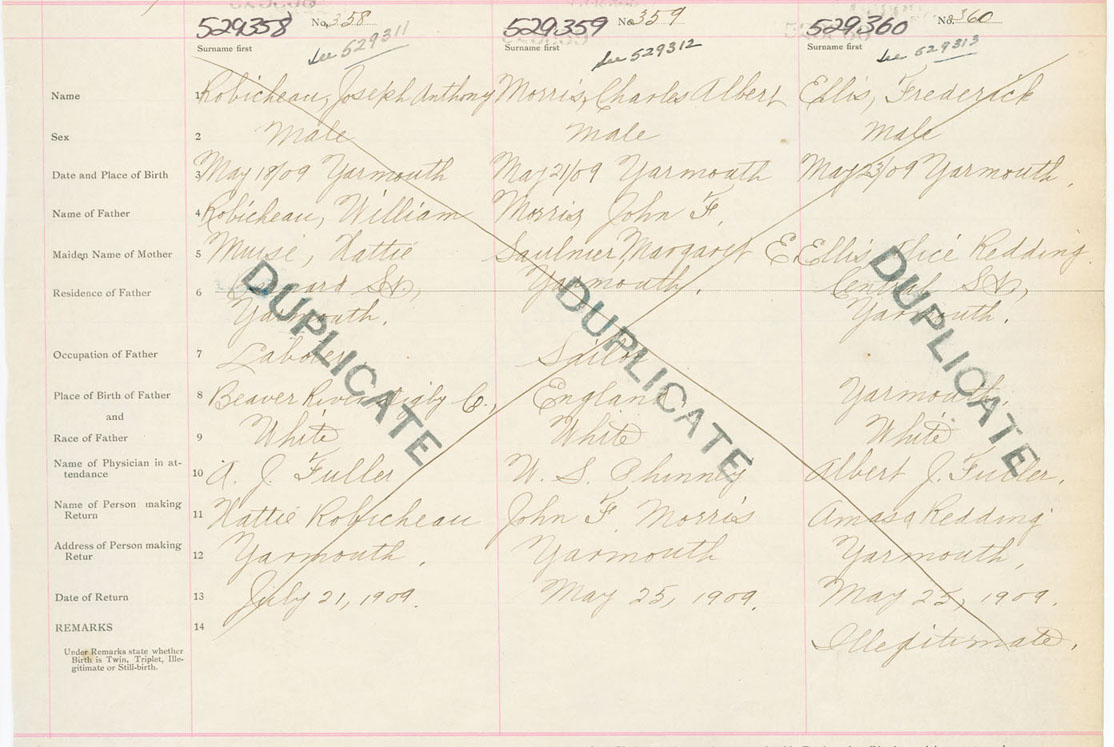 529358 No. 358 529359 No. 359 529360 No. 360
See 529311 See 529312 See 529313
Surname first Surname first Surname first
Name 1 Robicheau, Joseph Anthony Morris, Charles Albert Ellis, Frederick
Sex 2 Male Male Male
Date and Place of Birth 3 May 18/09 Yarmouth May 21/09 Yarmouth May 23/09 Yarmouth.
Name of Father 4 Robicheau, William Morris, John F.
Maiden Name of Mother 5 Muise, Hattie Saulnier Margaret E. Ellis Alice Redding.
Residence of Father 6 St, Yarmouth. Central St,
Yarmouth. Yarmouth.
Occupation of Father 7 Laborer Sailor
Place of Birth of Father 8 Beaver River Digby Co., England Yarmouth.
and
Race of Father 9 White White White
Name of Physician in at-
tendance 10 A. J. Fuller W. S. Phinney Albert J. Fuller.
Name of Person making
Return 11 Hattie Robicheau John F. Morris Amasa Redding
Address of Person making
Retur 12 Yarmouth. Yarmouth Yarmouth.
Date of Return 13 July 21, 1909. May 25, 1909. May 25, 1909.
REMARKS 14 Illegitimate.
Under Remarks state whether
Birth is Twin, Triplet, Ille-
gitimate or Still-birth.
DUPLICATE DUPLICATE DUPLICATE